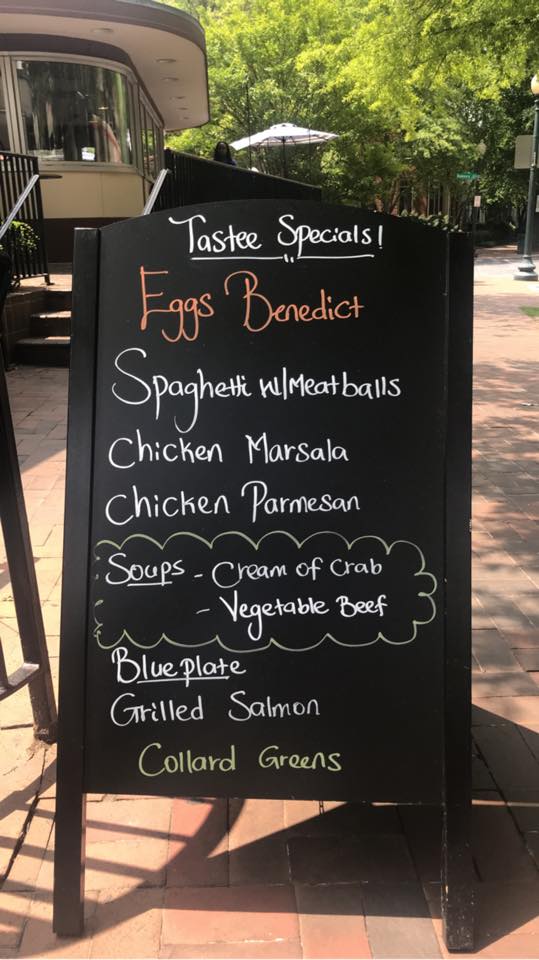 Tastee Specials!
Eggs Benedict
Spaghetti w/Meatballs
Chicken Marsala
Chicken Parmesan
Soups - Cream of Crab
- Vegetable Beef
Blueplate
Grilled Salmon
Collard Greens